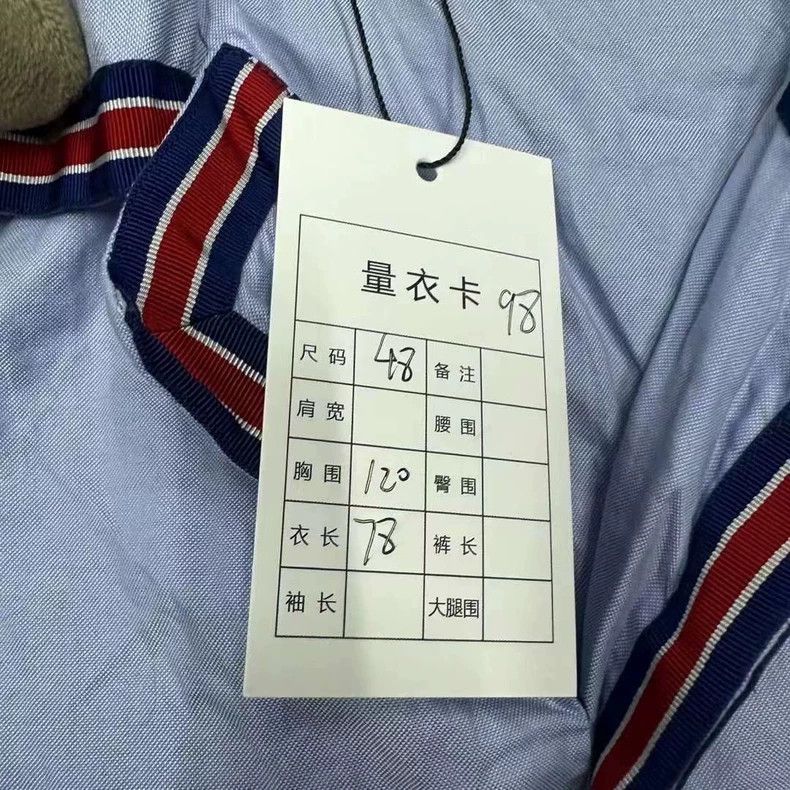 量衣卡 98
尺码 48 备注
肩宽 腰围
胸围 120 臀围
衣长 78 裤长
袖长 大腿围